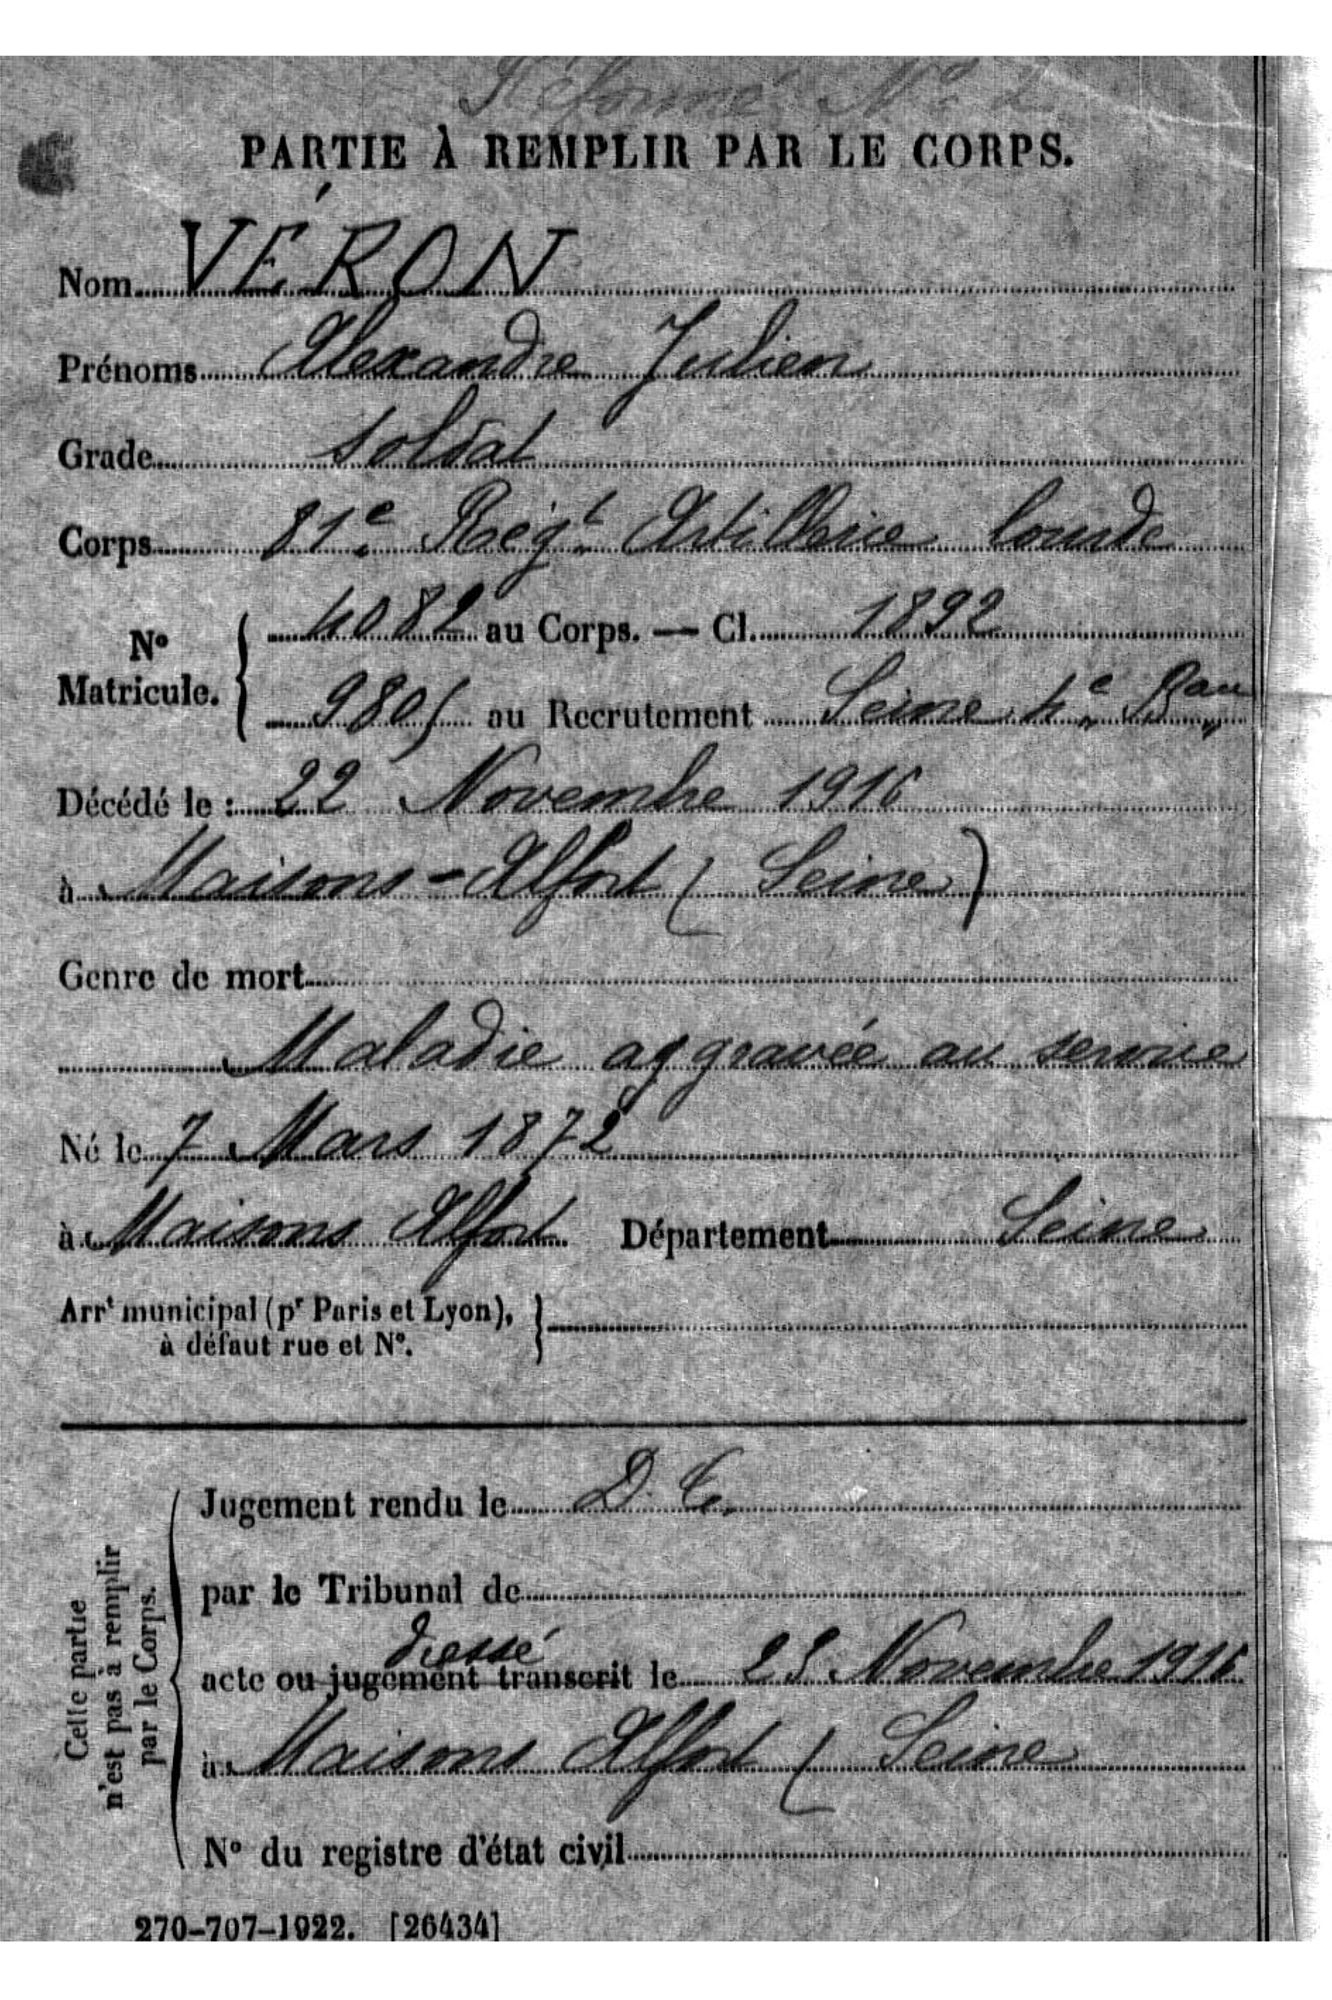 Réformé No 2
PARTIE À REMPLIR PAR LE CORPS.
Nom VÉRON
Prénoms Alexandre Julien
Grade soldat
Corps 81e Régt Artillerie lourde
No Matricule. { 4082 au Corps. — Cl. 1892
9805 au Recrutement Seine 4e Bau
Décédé le : 22 Novembre 1916
à Maisons-Alfort (Seine)
Genre de mort
Maladie aggravée au service
Né le 7 Mars 1872
à Maisons Alfort Département Seine
Arrt municipal (pr Paris et Lyon), }
à défaut rue et No.
Cette partie
n'est pas à remplir
par le Corps.
Jugement rendu le D. C.
par le Tribunal de
dressé
acte ou jugement transcrit le 23 Novembre 1916
à Maisons Alfort (Seine
No du registre d'état civil
270-707-1922. [26434]